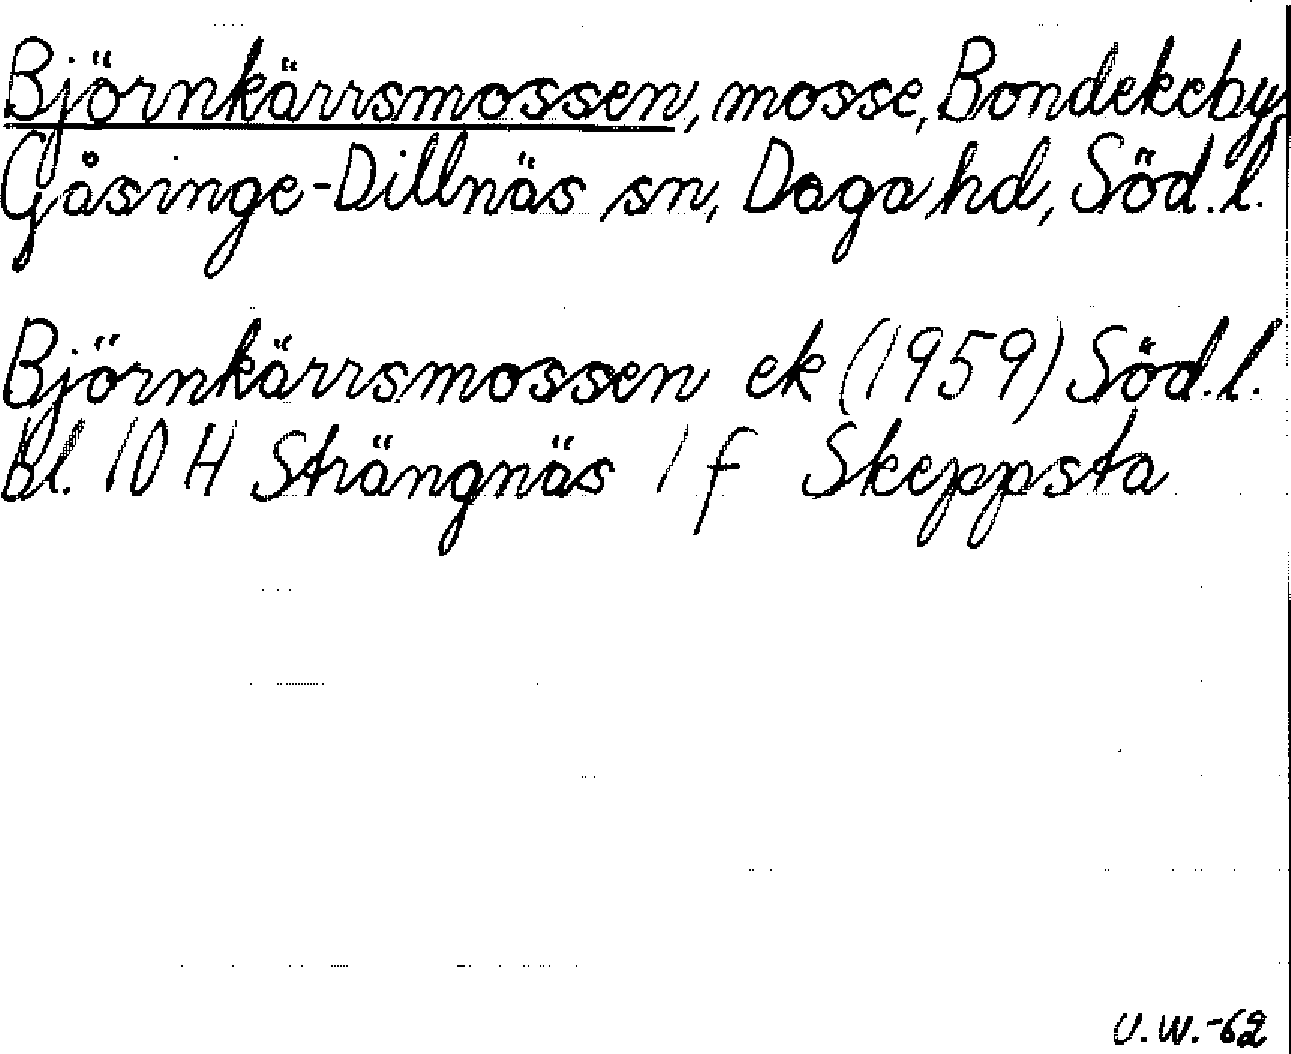 Björnkärrsmossen, mosse, Bondekeby
Gåsinge-Dillnäs sn, Daga hd, Söd. l.
Björnkärrsmossen ek (1959) Söd. l.
bl. 10 H Strängnäs 1 f Skeppsta
U.W.-62